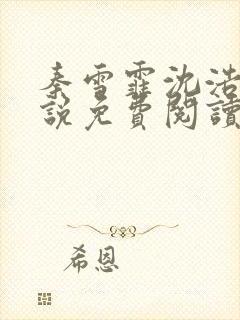 秦雪霏沈浩
說免費閱讀
希恩